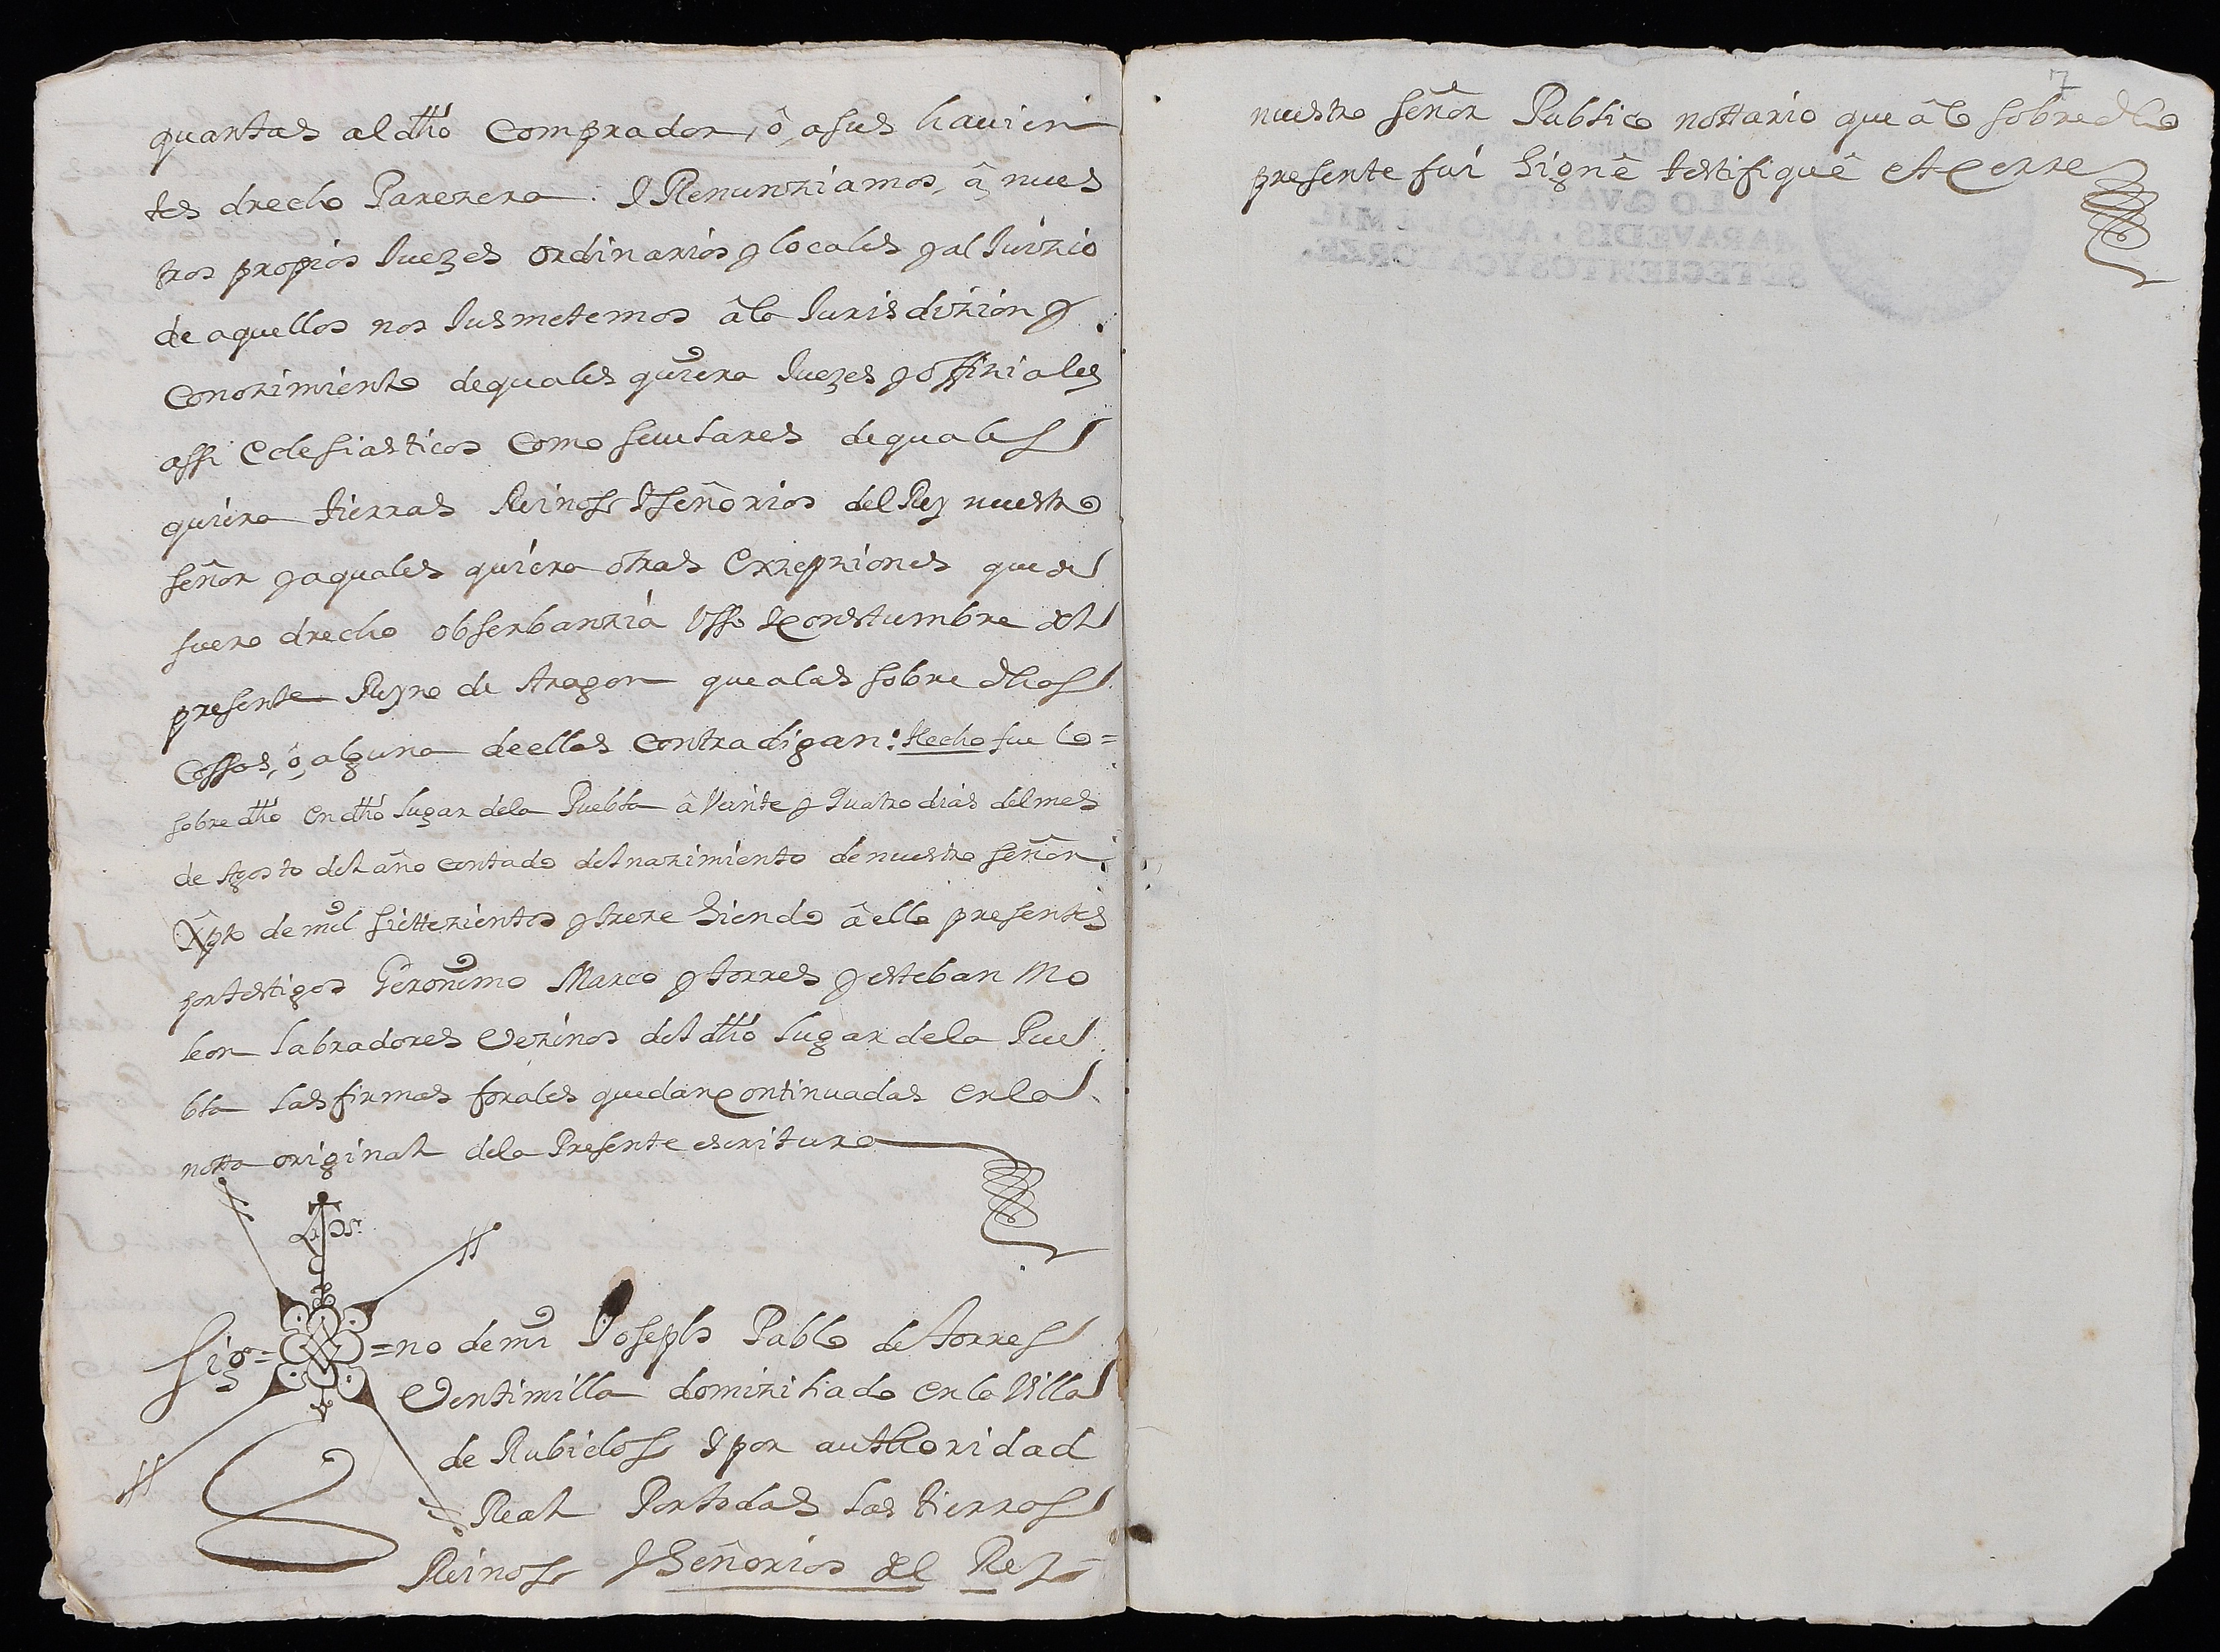 quantas al dho comprador, ô, a sus havien
tes drecho Parezera. Y Renunziamos, â nues
tros propios Juezes ordinarios y locales y al Juizio
de aquellos nos Jusmetemos âla Jurisdizion y
Conozimiento dequales quiera Juezes y offiziales
assi Eclesiasticos como seculares dequales
quiera tierras Reinos Y señorios del Rey nuestro
señor y a quales quiera otras Exzepziones que de
fuero drecho obserbanzia Usso Y constumbre del
presente Reyno de Aragon que alas sobre dhas
cossas, ô, alguna de ellas contradigan: Hecho fue lo=
sobre dho en dho lugar dela Puebla â Veinte y Quatro dias del mes
de Agosto del año contado del nazimiento de nuestro señor
Xpto de mil siettezientos y treze siendo â ello presentes
por testigos Geronimo Marco y torres y esteban Mo
leon labradores vezinos del dho lugar dela Pue
bla las firmas forales quedan continuadas en la
notta original dela Presente escritura
Sig= =no de mi Joseph Pablo de Torres
Ventimilla domiziliado en la Villa
de Rubielos Y por authoridad
Real Por todas las tierras
Reinos Y Señorios del Rey=
7
nuestro señor Publico nottario que â lo sobre dho
presente fui signê testifiquê et cerre
SELLO QVARTO,
MARAVEDIS, AÑO DE MIL
SETECIENTOS Y CATORZE.